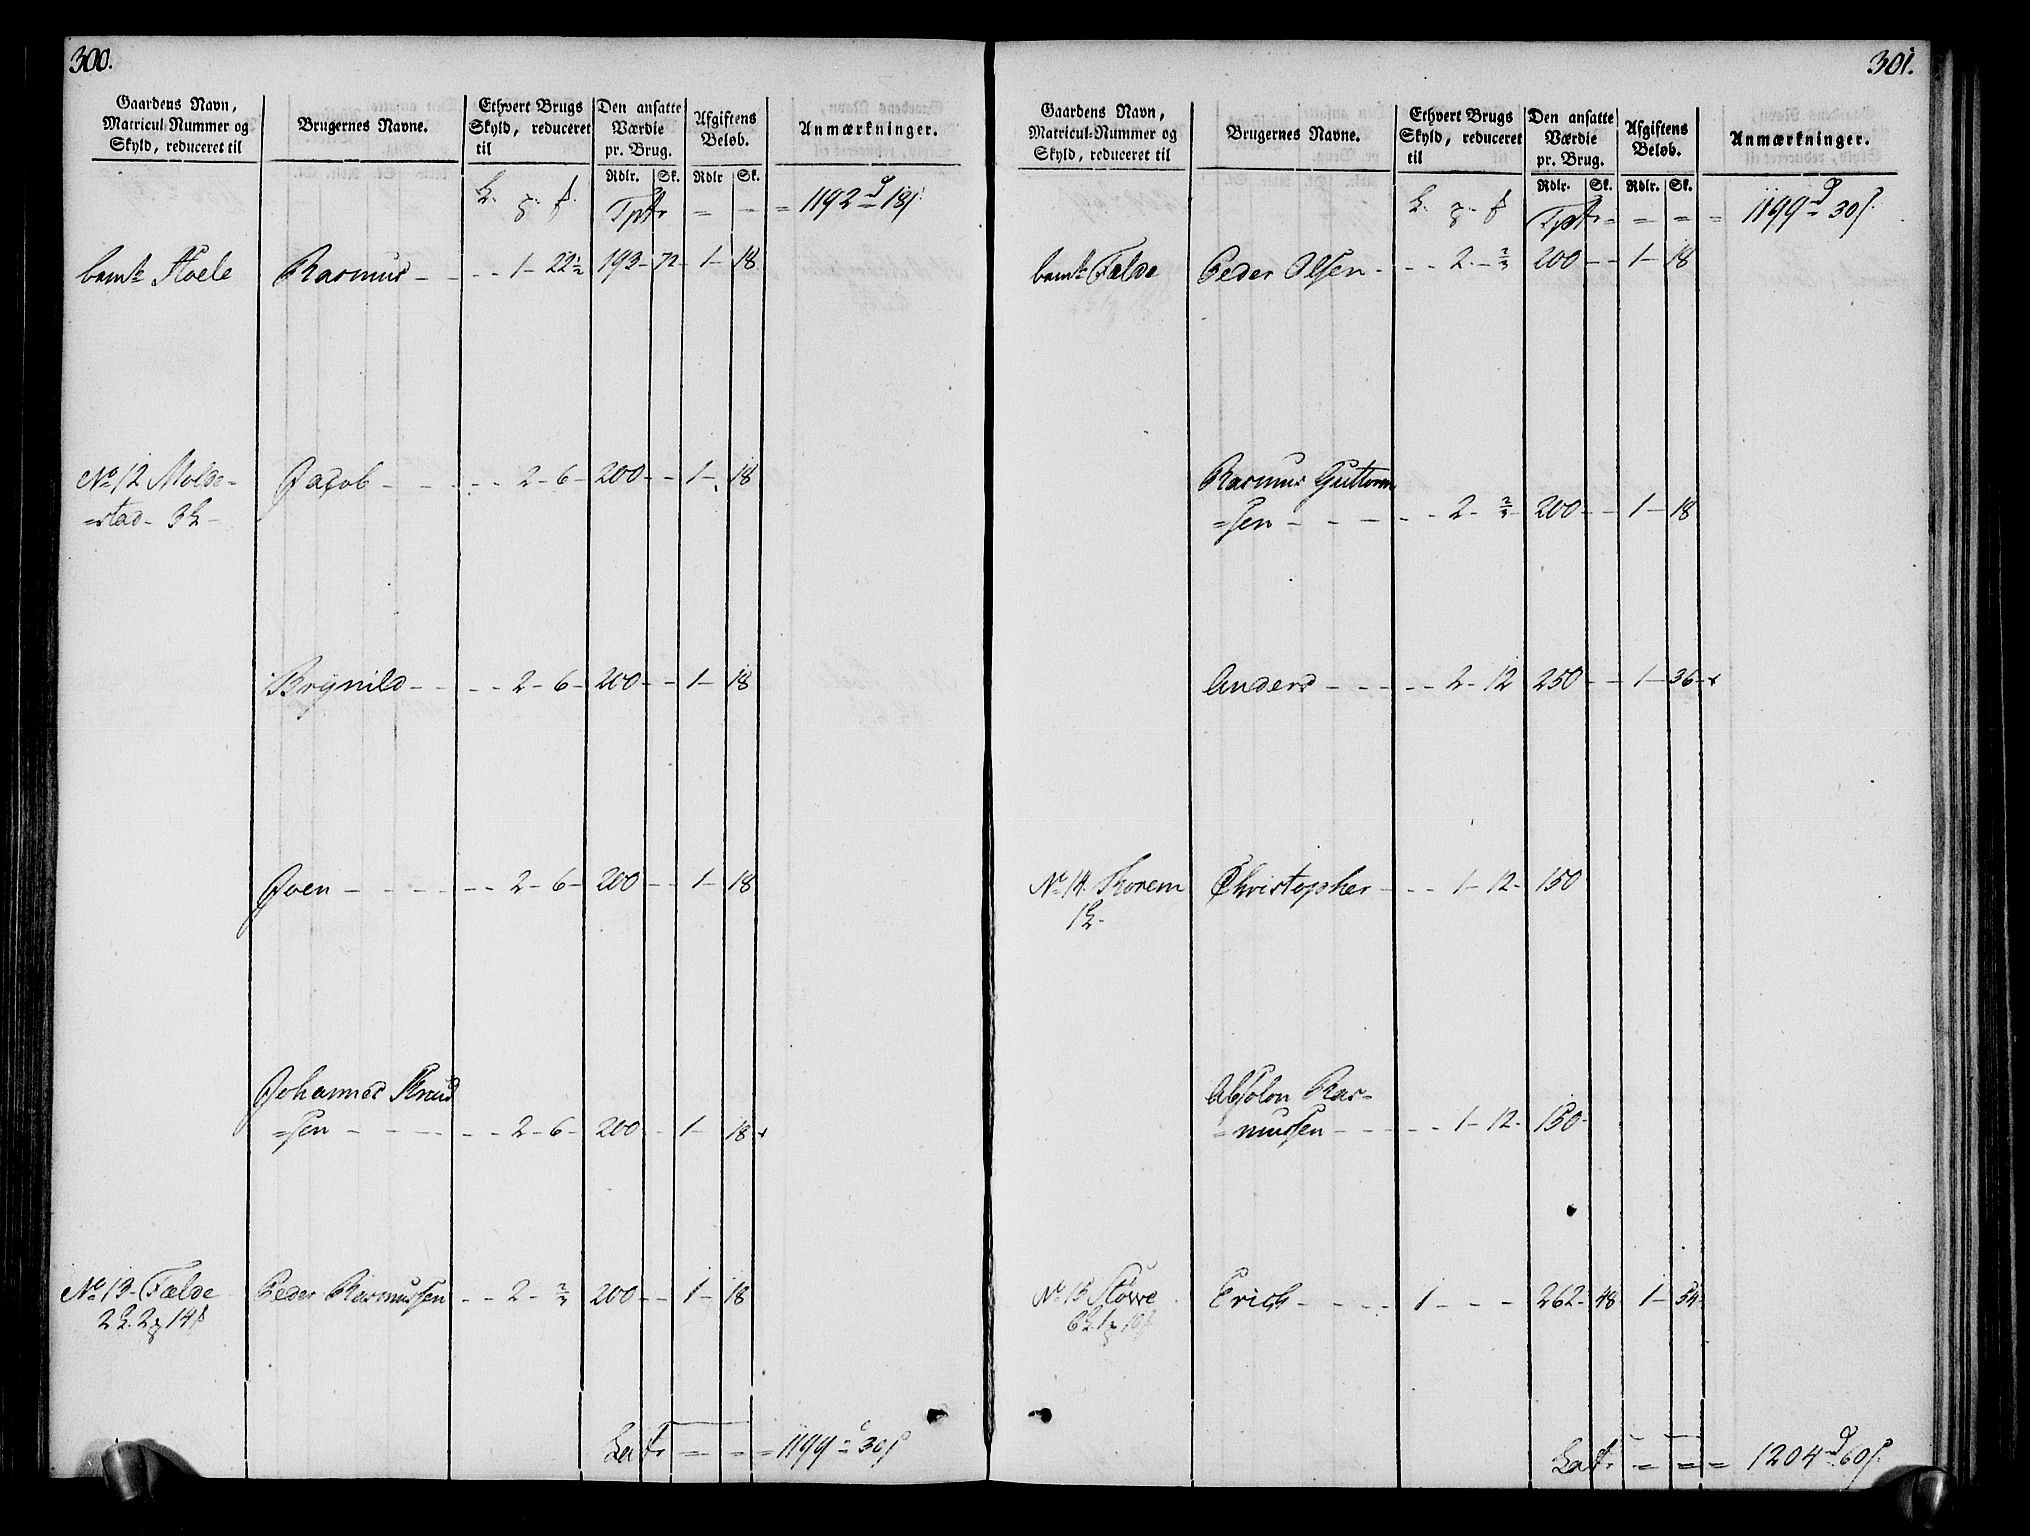 300.
Gaardens Navn, Matricul-Nummer og Skyld, reduceret til
Brugernes Navne.
Ethvert Brugs Skyld, reduceret til
Den ansatte Værdie pr. Brug.
Afgiftens Beløb.
Anmærkninger.
Rdlr. Sk. Rdlr Sk.
Tptr = - = 1192 d 18 s.
bemte Røele Rasmus - - - 1 - 22 1/2 193 - 72 - 1 - 18
No 12 Molde- Jacob - - - - 2 - 6 - 200 - - 1 - 18
=stad - 3
Brynild - - - - 2 - 6 - 200 - - 1 - 18
Joen - - - - - 2 - 6 - 200 - - 1 - 18
Johannes Knud
=sen - - - - - 2 - 6 - 200 - - 1 - 18
No 13 - Fælde Peder Rasmussen - - 2 - 2/3 200 - - 1 - 18
2 2 14
Latr = = = 1199 d 30 s
301.
Gaardens Navn, Matricul-Nummer og Skyld, reduceret til
Brugernes Navne.
Ethvert Brugs Skyld, reduceret til
Den ansatte Værdie pr. Brug.
Afgiftens Beløb.
Anmærkninger.
Rdlr. Sk. Rdlr. Sk.
Tptr = = = = 1199 d 30 s.
bemte Fælde Peder Olsen - - - 2 - 2/3 200 - - 1 - 18
Rasmus Guttorm
=sen - - - - - 2 - 2/3 200 - - 1 - 18
Anders - - - - - 2 - 12 250 - - 1 - 36
No 14. Christopher - - - 1 - 12 - 150
1
Absolon Ras-
=mussen - - - - - 1 - 12 - 150 -
No 15 Erich - - - - 1 - - - 262 - 48 1 - 54 -
6 1
Latr = = = 1204 d 60 s.